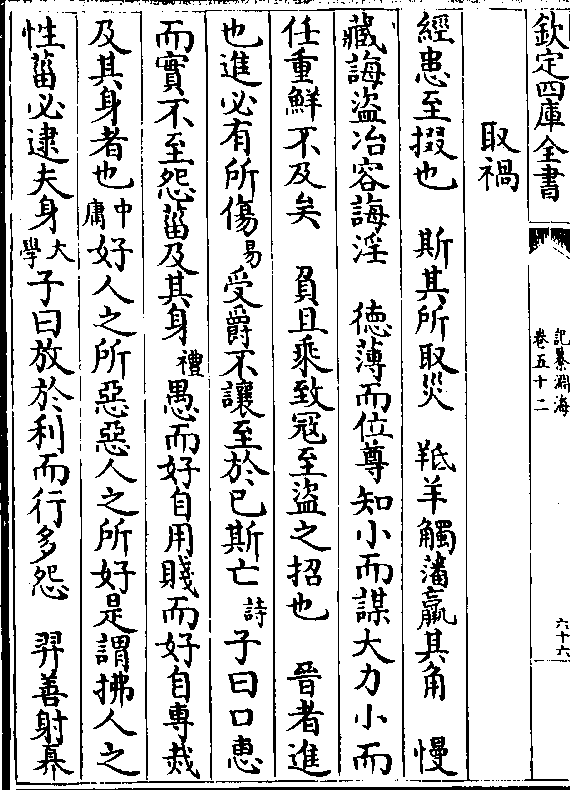 欽定四庫全書
記纂淵海
卷五十二
六十六
取禍
經患至掇也　斯其所取災　羝羊觸藩羸其角　慢
藏誨盜冶容誨淫　德薄而位尊知小而謀大力小而
任重鮮不及矣　負且乘致寇至盜之招也　晉者進
也進必有所傷易受爵不讓至於已斯亡詩子曰口惠
而實不至怨菑及其身禮愚而好自用賤而好自專烖
及其身者也中庸好人之所惡惡人之所好是謂拂人之
性菑必逮夫身大學子曰放於利而行多怨　羿善射奡